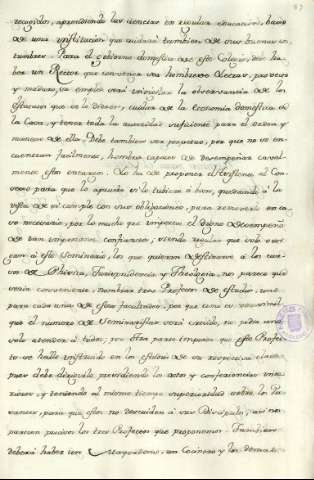 recogidos, aprendiendo las ciencias en regular educacion, baxo
de una institucion que cuidará tambien de sus buenas cos-
tumbres. Para el gobierno domestico de este Colegio, debe ha-
ber un Rector que convenga sea hombre de letras, provecto
y maduro, su empleo será vigilar la observancia de los
Estatutos que se le dieren, cuidar de la economía domestica de
la Casa, y tener toda la autoridad suficiente para el orden y
manejo de ella. Debe tambien ser perpetuo, por que no se en-
cuentran facilmente hombres capaces de desempeñar caval-
mente este encargo. Le ha de proponer el al Con-
sejo para que lo apruebe si lo tubiere á bien, quedando á la
vista de si cumple con sus obligaciones, para removerlo en ca-
so necesario, por lo mucho que importa el digno desempeño
de tan importante confianza; siendo regular que solo ven-
gan á este Seminario, los que quieran destinarse á los cur-
sos de Phisica, Jurisprudencia y Theologia, nos parece que
sería conveniente, nombrar tres Profesores de estudio, uno
para cada una de estas facultades, por que como es verosimil
que el numero de Seminaristas será crecido, no podra uno
solo atender á todos; por otra parte importa que este Profe-
sor se halle instruido en los de su respectiva ciencia
pues debe dirigirlos presidiendo los actos y conferencias inte-
riores, y teniendo al mismo tiempo superioridad sobre los Pa-
santes, para que estos no descuiden á sus Discipulos; asi nos
parecen precisos los tres Profesores que proponemos. Tambien
deberá haber un Mayordomo, un Cocinero y los demas